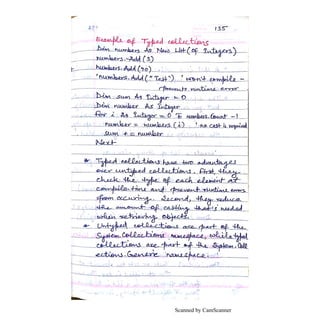 135
Example of Typed collections
Dim numbers As New List (Of Integers)
numbers.Add(3)
numbers.Add(70)
'numbers.Add("Test") ' won't compile -
prevents runtime error
Dim sum As Integer = 0
Dim number As Integer
For i As Integer = 0 To numbers.Count - 1
number = numbers(i) ' no cast is required
sum += number
Next
* Typed collections have two advantages
over untyped collections. First they
check the type of each element at
compile-time and prevent runtime errors
from occuring. Second, they reduce
the amount of casting that's needed
when retrieving objects.
* Untyped collections are part of the
System.Collections namespace, while typed
collections are part of the System.Coll
ections.Generic namespace.
Scanned by CamScanner